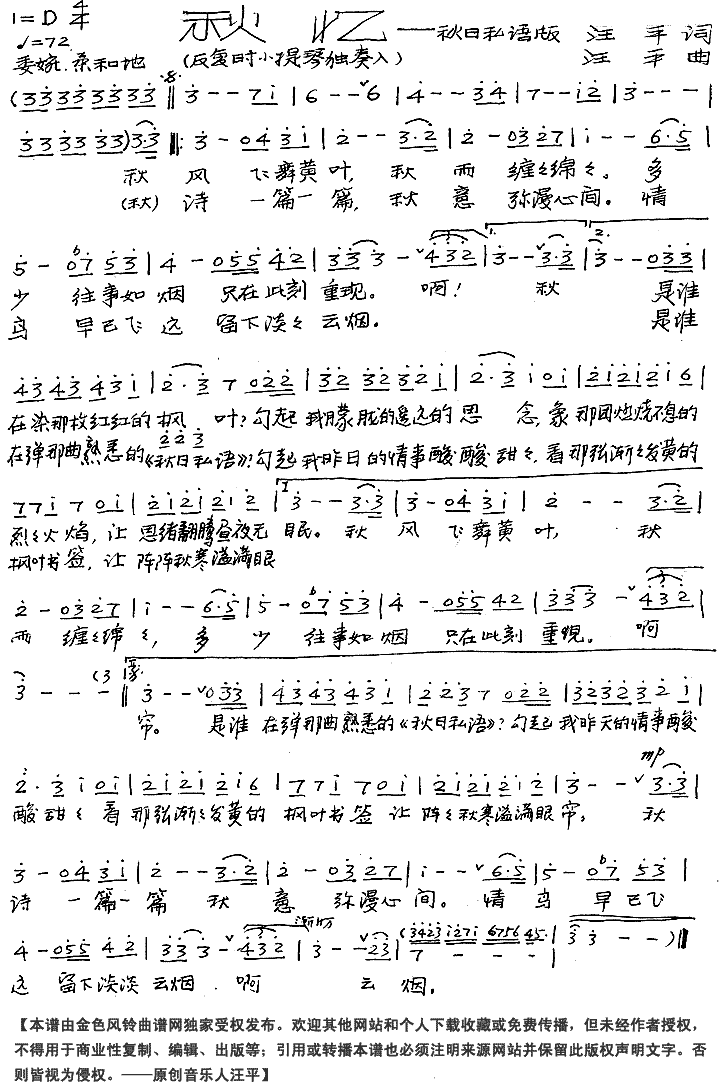 1=D 4/4 秋忆——秋日私语版 汪平 词
♩=72 汪平 曲
委婉.柔和地 (反复时小提琴独奏入)
(33 33 33 33 ‖ 3 - - 7 i | 6 - - 6 | 4 - - 3 4 | 7 - - i 2 | 3 - - - |
33 33 33 33) 3·3 ‖: 3 - 0 4 3 i | 2 - - 3·2 | 2 - 0 3 2 7 | i - - 6·5 |
秋 风 飞舞黄叶, 秋 雨 缠々绵々。 多
(秋) 诗 一篇一篇, 秋 意 弥漫心间。 情
5 - 0 b7 5 3 | 4 - 0 5 5 4 2 | 3 3 3 - 4 3 2 | 1. 3 - - 3·3 :| 2. 3 - - 0 3 3 |
少 往事如烟 只在此刻 重现。 啊! 秋 是谁
鸟 早已飞远 留下淡々云烟。 是谁
4 3 4 3 4 3 i | 2·3 7 0 2 2 | 3 2 3 2 3 2 i | 2·3 i 0 i | 2 i 2 i 2 i 6 |
在染那枚红红的枫 叶?勾起我朦胧的遥远的思 念,象那团燃烧不息的
2 2 3
在弹那曲熟悉的《秋日私语》?勾起我昨日的情事酸酸甜々,看那张渐々发黄的
7 7 i 7 0 i | 2 i 2 i 2 i 2 | 1. 3 - - 3·3 | 3 - 0 4 3 i | 2 - - 3·2 |
烈々火焰,让 思绪翻腾昼夜无 眠。秋 风 飞舞黄叶, 秋
枫叶书签,让 阵阵秋寒溢满眼
2 - 0 3 2 7 | i - - 6·5 | 5 - 0 b7 5 3 | 4 - 0 5 5 4 2 | 3 3 3 - 4 3 2 |
雨 缠々绵々, 多 少 往事如烟 只在此刻 重现。 啊
3 - - - (3 ‖ 3 - - 0 3 3 | 4 3 4 3 4 3 i | 2 2 3 7 0 2 2 | 3 2 3 2 3 2 i |
帘。 是谁 在弹那曲熟悉的《秋日私语》?勾起我昨天的情事酸
mp
2·3 i 0 i | 2 i 2 i 2 i 6 | 7 7 i 7 0 i | 2 i 2 i 2 i 2 | 3 - - 3·3 |
酸 甜々 看 那张渐々发黄的 枫叶书签 让 阵々秋寒溢满眼 帘, 秋
3 - 0 4 3 i | 2 - - 3·2 | 2 - 0 3 2 7 | i - - 6·5 | 5 - 0 b7 5 3 |
诗 一篇一篇 秋 意 弥漫心间。 情 鸟 早已飞
渐慢
4 - 0 5 5 4 2 | 3 3 3 - 4 3 2 | 3 - - 2 3 | (3 4 2 3 i 2 7 i 6 7 5 6 4 5· | 3 3 - -) ‖
7 - - -
远 留下淡淡云烟.啊 云 烟.
【本谱由金色风铃曲谱网独家受权发布。欢迎其他网站和个人下载收藏或免费传播,但未经作者授权,
不得用于商业性复制、编辑、出版等;引用或转播本谱也必须注明来源网站并保留此版权声明文字。否
则皆视为侵权。——原创音乐人汪平】